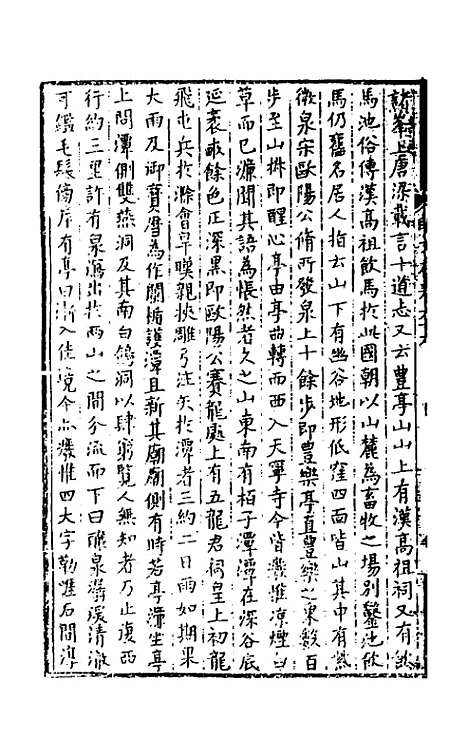 諸峯上唐梁載言十道志又云豐亭山山上有漢高祖祠又有飲
馬池俗傳漢高祖飲馬於此國朝以山麓為畜牧之場別鑿池飲
馬仍舊名居人指云山下有幽谷地形低窪四面皆山其中有紫
微泉宋歐陽公脩所發泉上十餘步即豐樂亭直豐樂之東數百
步至山椒即醒心亭由亭曲轉而西入天寧寺今皆廢惟涼煙白
草而已濂聞其語為悵然者久之山東南有柏子潭潭在深谷底
延袤畝餘色正深黑即歐陽公賽龍處上有五龍君祠皇上初龍
飛屯兵於滁會旱暵親挾雕弓注矢於潭者三約二日雨如期果
大雨及御寶曆為作闌楯護潭且新其廟廟側有時若亭潭坐亭
上問潭側雙燕洞及其南白鶴洞以肆窮覽人無知者乃止復西
行約三里許有泉瀉出於兩山之間分流而下曰釀泉潺湲清澈
可鑑毛髮傍岸有亭曰漸入佳境今亦廢惟四大字勒涯石間淳